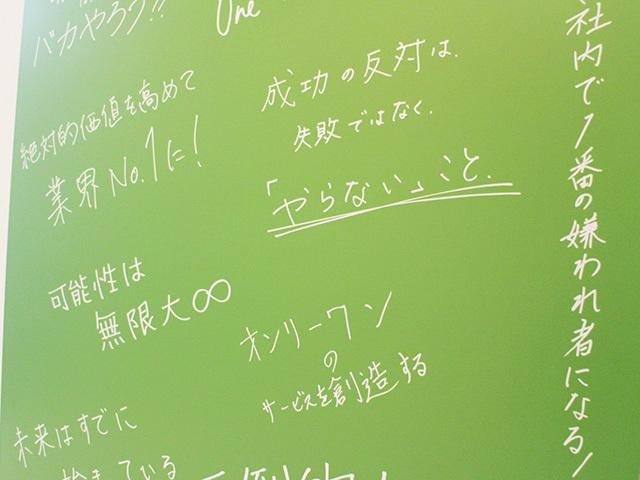 バカやろう!!
One
絶対的価値を高めて
業界No.1に!
成功の反対は、
失敗ではなく、
「やらない」こと。
社内で1番の嫌われ者になる!
可能性は
無限大∞
オンリーワン
の
サービスを創造する
未来はすでに
始まっている